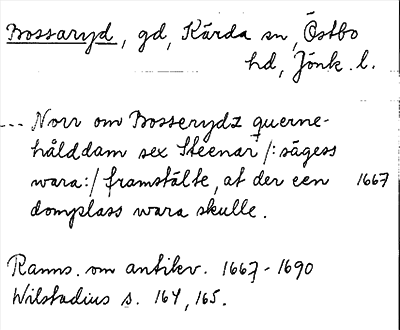 Bossaryd, gd, Kärda sn, Östbo
hd, Jönk. l.
... Norr om Bosserydz querne-
hålddam sex Steenar /: sägess
wara:/ framstälte, at der een 1667
domplass wara skulle.
Ranns. om antikv. 1667-1690
Wilstadius s. 164, 165.